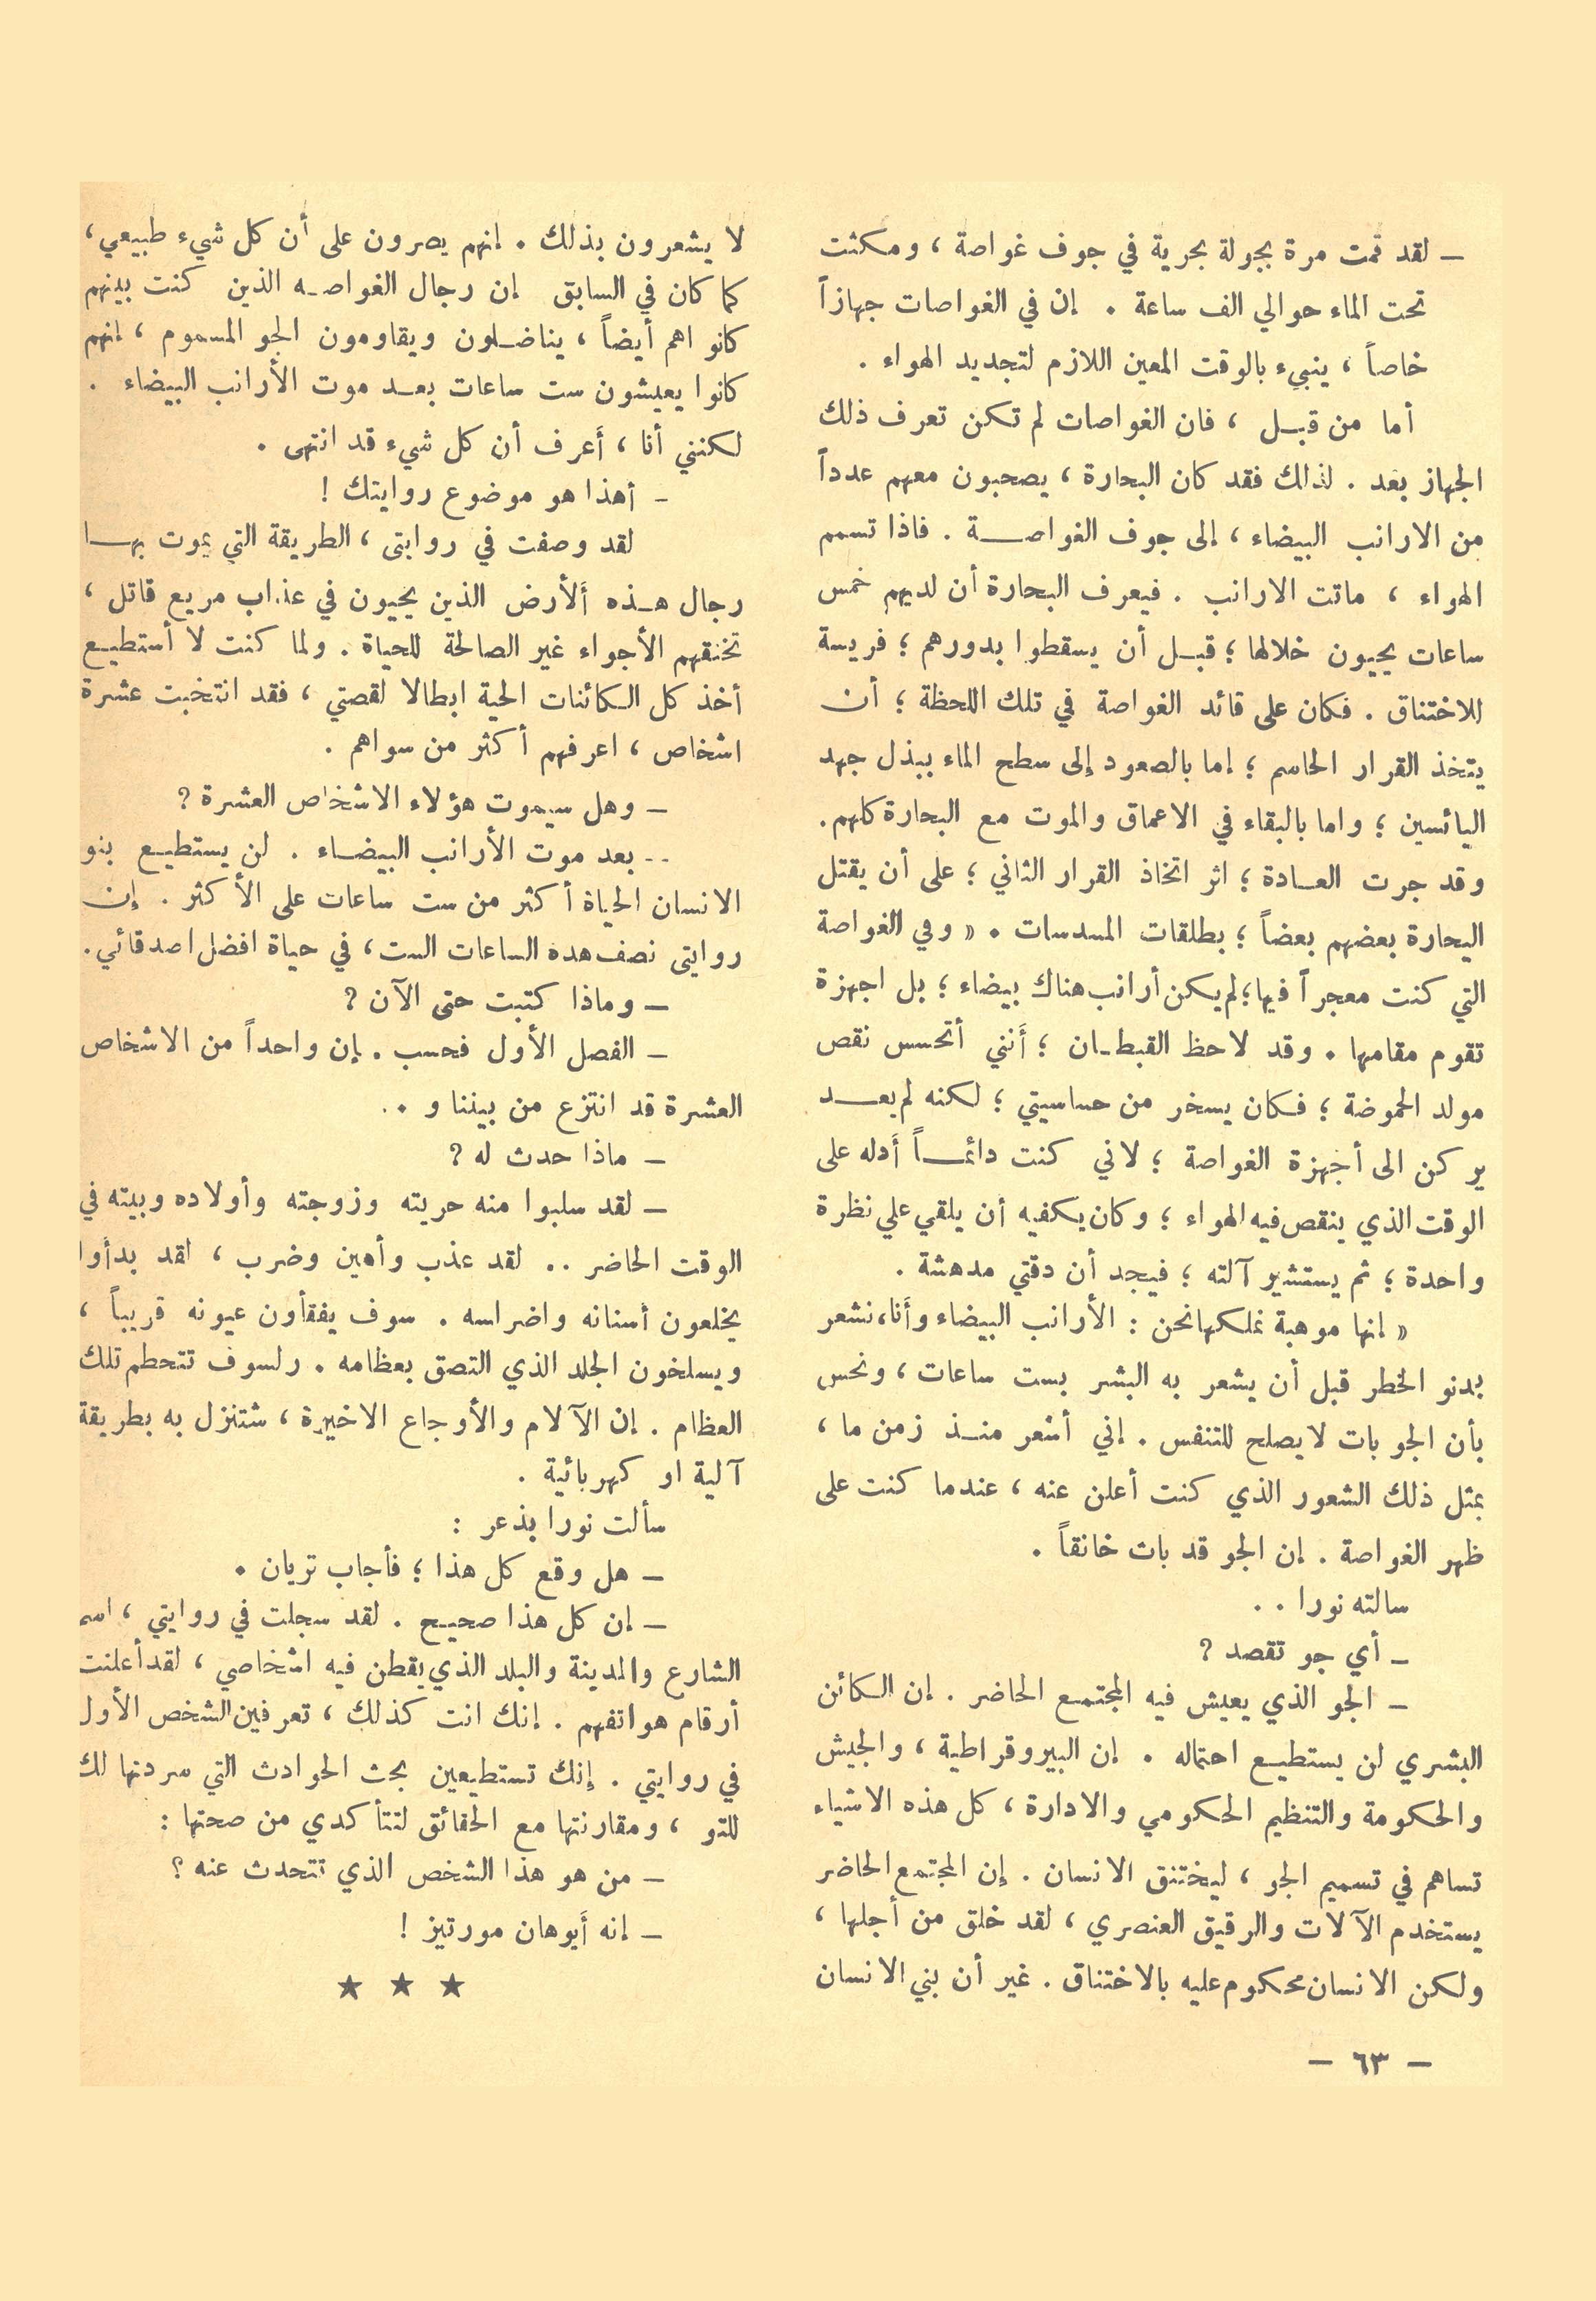 – لقد قمت مرة بجولة بحرية في جوف غواصة ، ومكثت
تحت الماء حوالي الف ساعة . إن في الغواصات جهازاً
خاصاً ، ينبيء بالوقت المعين اللازم لتجديد الهواء .
أما من قبل ، فان الغواصات لم تكن تعرف ذلك
الجهاز بعد . لذلك فقد كان البحارة ، يصحبون معهم عدداً
من الارانب البيضاء ، إلى جوف الغواصة . فاذا تسمم
الهواء ، ماتت الارانب . فيعرف البحارة أن لديهم خمس
ساعات يحيون خلالها ؛ قبل أن يسقطوا بدورهم ؛ فريسة
للاختناق . فكان على قائد الغواصة في تلك اللحظة ؛ أن
يتخذ القرار الحاسم ؛ إما بالصعود إلى سطح الماء ببذل جهد
اليائسين ؛ واما بالبقاء في الاعماق والموت مع البحارة كلهم.
وقد جرت العادة ؛ اثر اتخاذ القرار الثاني ؛ على أن يقتل
البحارة بعضهم بعضاً ؛ بطلقات المسدسات . « وفي الغواصة
التي كنت معجراً فيها؛ لم يكن أرانب هناك بيضاء ؛ بل اجهزة
تقوم مقامها . وقد لاحظ القبطان ؛ أنني أتحسس نقص
مولد الحموضة ؛ فكان يسخر من حساسيتي ؛ لكنه لم يعد
يركن الى أجهزة الغواصة ؛ لاني كنت دائماً أدله على
الوقت الذي ينقص فيه الهواء ؛ وكان يكفيه أن يلقي علي نظرة
واحدة ؛ ثم يستشير آلته ؛ فيجد أن دقتي مدهشة .
« إنها موهبة نملكها نحن : الأرانب البيضاء وأنا، نشعر
بدنو الخطر قبل أن يشعر به البشر بست ساعات ، ونحس
بأن الجو بات لا يصلح للتنفس . إني أشعر منذ زمن ما ،
بمثل ذلك الشعور الذي كنت أعلن عنه ، عندما كنت على
ظهر الغواصة . إن الجو قد بات خانقاً .
سالته نورا . .
– أي جو تقصد ؟
– الجو الذي يعيش فيه المجتمع الحاضر . إن الكائن
البشري لن يستطيع احتماله . إن البيروقراطية ، والجيش
والحكومة والتنظيم الحكومي والادارة ، كل هذه الاشياء
تساهم في تسميم الجو ، ليختنق الانسان . إن المجتمع الحاضر
يستخدم الآلات والرقيق العنصري ، لقد خلق من أجلها ،
ولكن الانسان محكوم عليه بالاختناق . غير أن بني الانسان
لا يشعرون بذلك . إنهم يصرون على أن كل شيء طبيعي ،
كما كان في السابق إن رجال الغواصه الذين كنت بينهم
كانو اهم أيضاً ، يناضلون ويقاومون الجو المسموم ، إنهم
كانوا يعيشون ست ساعات بعد موت الأرانب البيضاء .
لكنني أنا ، أعرف أن كل شيء قد انتهى .
– أهذا هو موضوع روايتك !
لقد وصفت في روايتى ، الطريقة التي يموت بها
رجال هذه ألأرض الذين يحيون في عذاب مريع قاتل ،
تخنقهم الأجواء غير الصالحة للحياة . ولما كنت لا أستطيع
أخذ كل الكائنات الحية ابطالا لقصتي ، فقد انتخبت عشرة
اشخاص ، اعرفهم أكثر من سواهم .
– وهل سيموت هؤلاء الاشخاص العشرة ؟
-- بعد موت الأرانب البيضاء . لن يستطيع بنو
الانسان الحياة أكثر من ست ساعات على الأكثر . إن
روايتى نصف هده الساعات الست، في حياة افضل اصدقائي.
– وماذا كتبت حتى الآن ؟
– الفصل الأول فحسب . إن واحداً من الاشخاص
العشرة قد انتزع من بيننا و ..
– ماذا حدث له ؟
– لقد سلبوا منه حريته وزوجته وأولاده وبيته في
الوقت الحاضر .. لقد عذب وأهين وضرب ، لقد بدأوا
يخلعون أسنانه واضراسه . سوف يفقأون عيونه قريباً ،
ويسلخون الجلد الذي التصق بعظامه . ولسوف تتحطم تلك
العظام . إن الآلام والأوجاع الاخيرة ، ستنزل به بطريقة
آلية او كهربائية .
سألت نورا بذعر :
– هل وقع كل هذا ؛ فأجاب تريان .
– إن كل هذا صحيح . لقد سجلت في روايتي ، اسم
الشارع والمدينة والبلد الذي يقطن فيه اشخاصي ، لقد أعلنت
أرقام هواتفهم . إنك انت كذلك ، تعرفين الشخص الأول
في روايتي . إنك تستطيعين بحث الحوادث التي سردتها لك
للتو ، ومقارنتها مع الحقائق لتتأكدي من صحتها :
– من هو هذا الشخص الذي تتحدث عنه ؟
– إنه أيوهان مورتيز !
★ ★ ★
– ٦٣ –